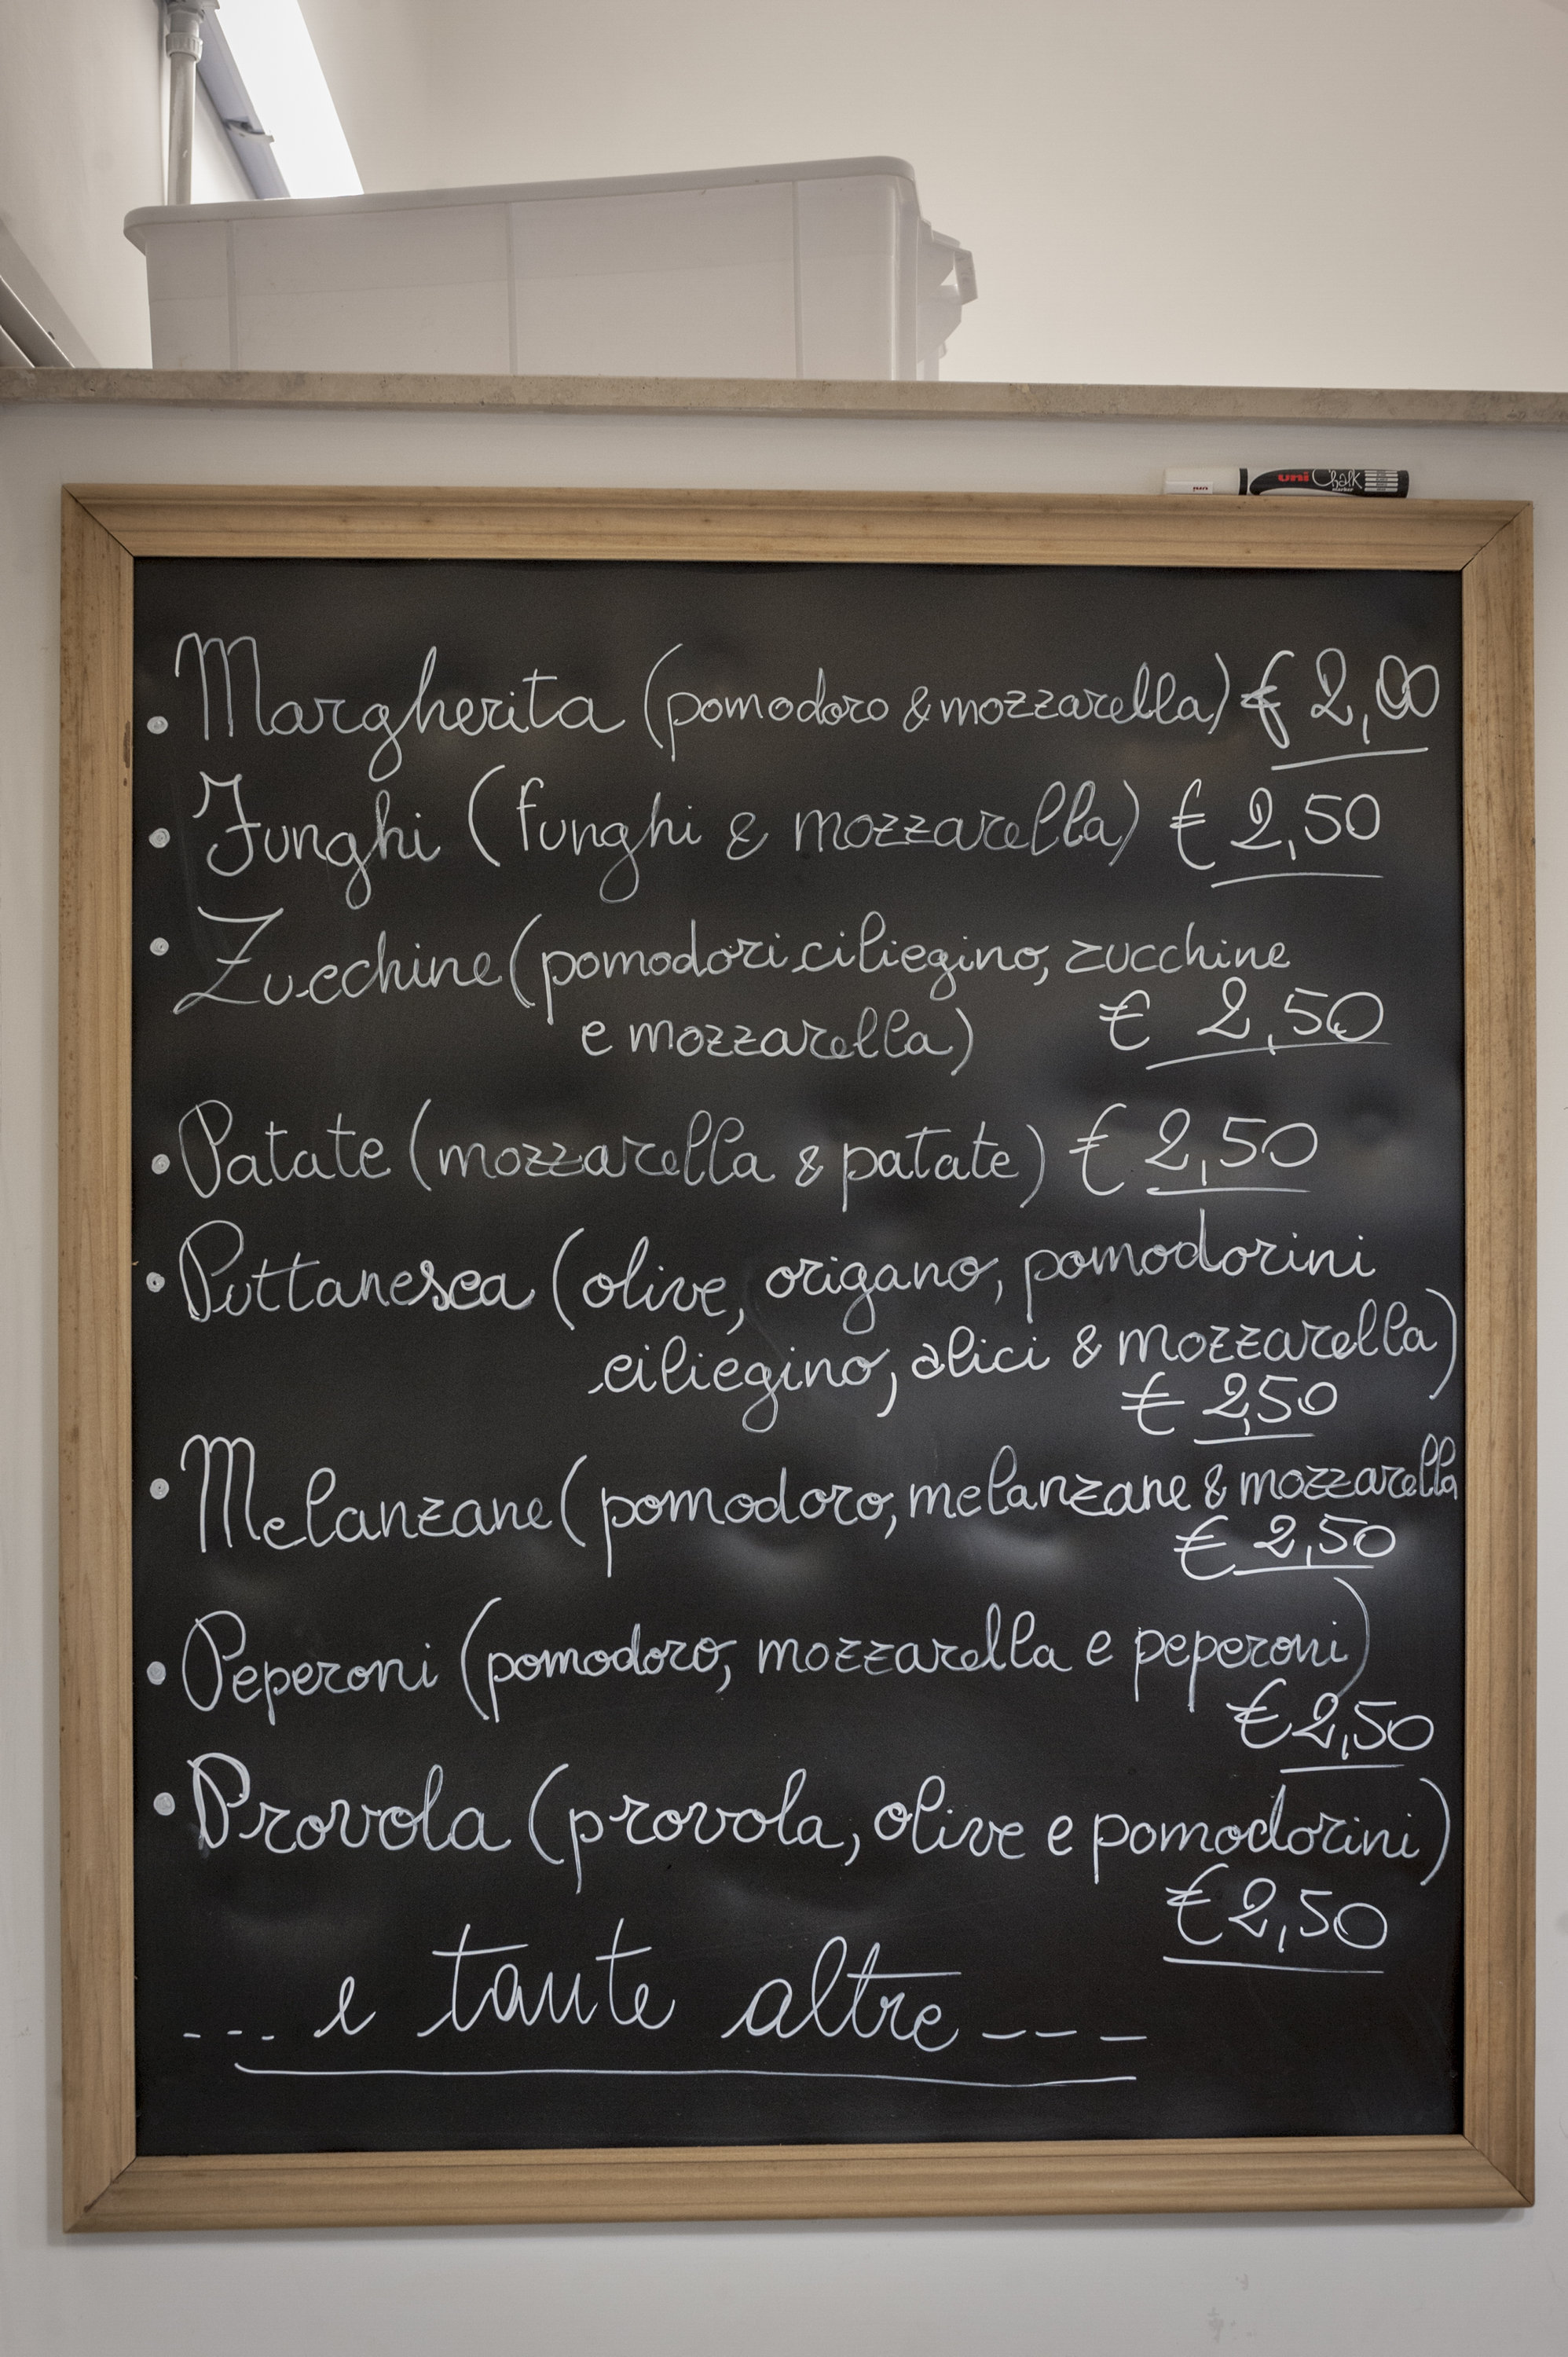 uni Chalk
marker
• Margherita (pomodoro & mozzarella) € 2,00
• Funghi (funghi & mozzarella) € 2,50
• Zucchine (pomodori ciliegino, zucchine
e mozzarella) € 2,50
• Patate (mozzarella & patate) € 2,50
• Puttanesca (olive, origano, pomodorini
ciliegino, alici & mozzarella)
€ 2,50
• Melanzane (pomodoro, melanzane & mozzarella
€ 2,50
• Peperoni (pomodoro, mozzarella e peperoni)
€ 2,50
• Provola (provola, olive e pomodorini)
€ 2,50
--- e tante altre ----